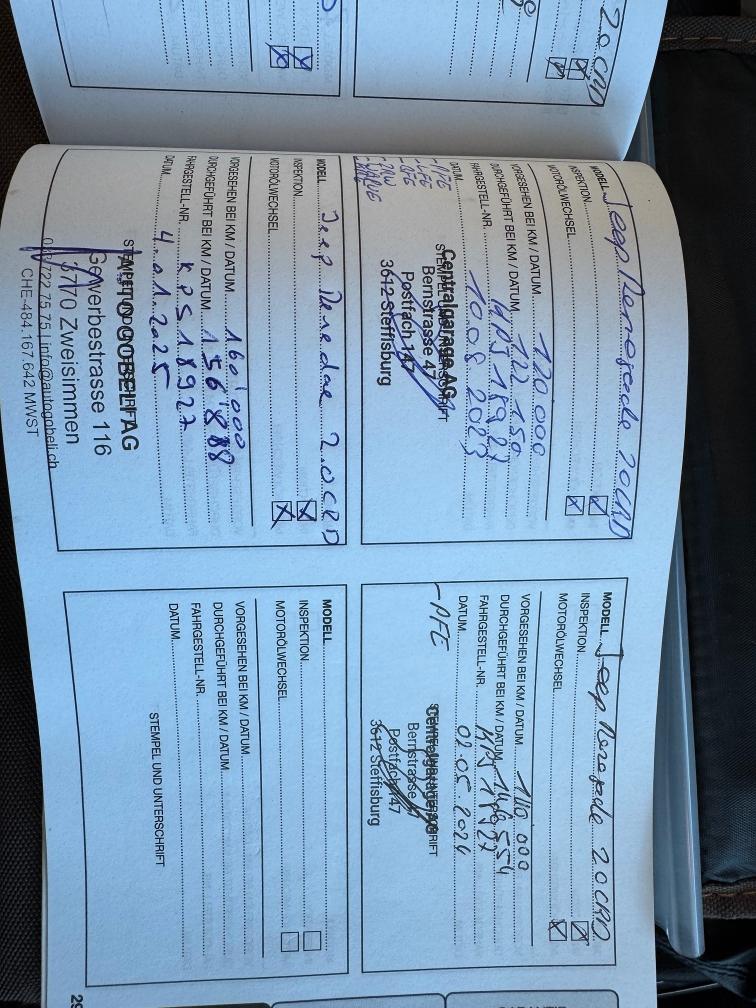 2.0 CRD
MODELL Jeep Renegade 2.0 CRD
INSPEKTION
MOTORÖLWECHSEL
VORGESEHEN BEI KM / DATUM 120'000
DURCHGEFÜHRT BEI KM / DATUM 122'150
FAHRGESTELL-NR. KPJ18927
DATUM 10.08.2023
STEMPEL UND UNTERSCHRIFT
Centralgarage AG
Bernstrasse 47
Postfach 147
3612 Steffisburg
MODELL Jeep Renegade 2.0 CRD
INSPEKTION
MOTORÖLWECHSEL
VORGESEHEN BEI KM / DATUM 140'000
DURCHGEFÜHRT BEI KM / DATUM
FAHRGESTELL-NR. KPJ18927
DATUM 02.05.2024
STEMPEL UND UNTERSCHRIFT
Centralgarage AG
Bernstrasse
Postfach 147
3612 Steffisburg
MODELL Jeep Renedae 2.0 CRD
INSPEKTION
MOTORÖLWECHSEL
VORGESEHEN BEI KM / DATUM 160'000
DURCHGEFÜHRT BEI KM / DATUM 156'888
FAHRGESTELL-NR. KPS18927
DATUM 4.01.2025
STEMPEL UND UNTERSCHRIFT
AUTO GOBELI AG
Gewerbestrasse 116
3770 Zweisimmen
033 722 75 75 | info@autogobeli.ch
CHE-484.167.642 MWST
MODELL
INSPEKTION
MOTORÖLWECHSEL
VORGESEHEN BEI KM / DATUM
DURCHGEFÜHRT BEI KM / DATUM
FAHRGESTELL-NR.
DATUM
STEMPEL UND UNTERSCHRIFT
29